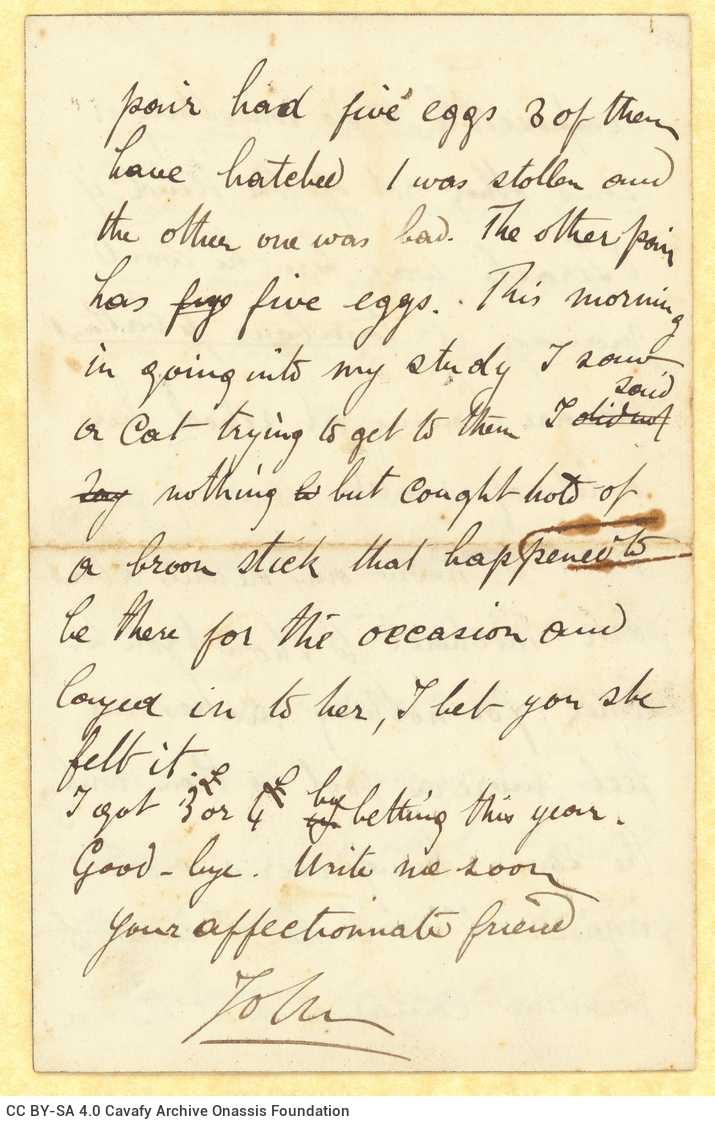 pair had five eggs 3 of them
have hatched 1 was stollen and
the other one was bad. The other pair
has five eggs. This morning
in going into my study I saw
a Cat trying to get to them I said
nothing but caught hold of
a broon stick that happened to
be there for the occasion and
layed in to her, I bet you she
felt it.
I got 3£ or 4£ by betting this year.
Good-bye. Write me soon
your affectionnate friend
John
CC BY-SA 4.0 Cavafy Archive Onassis Foundation